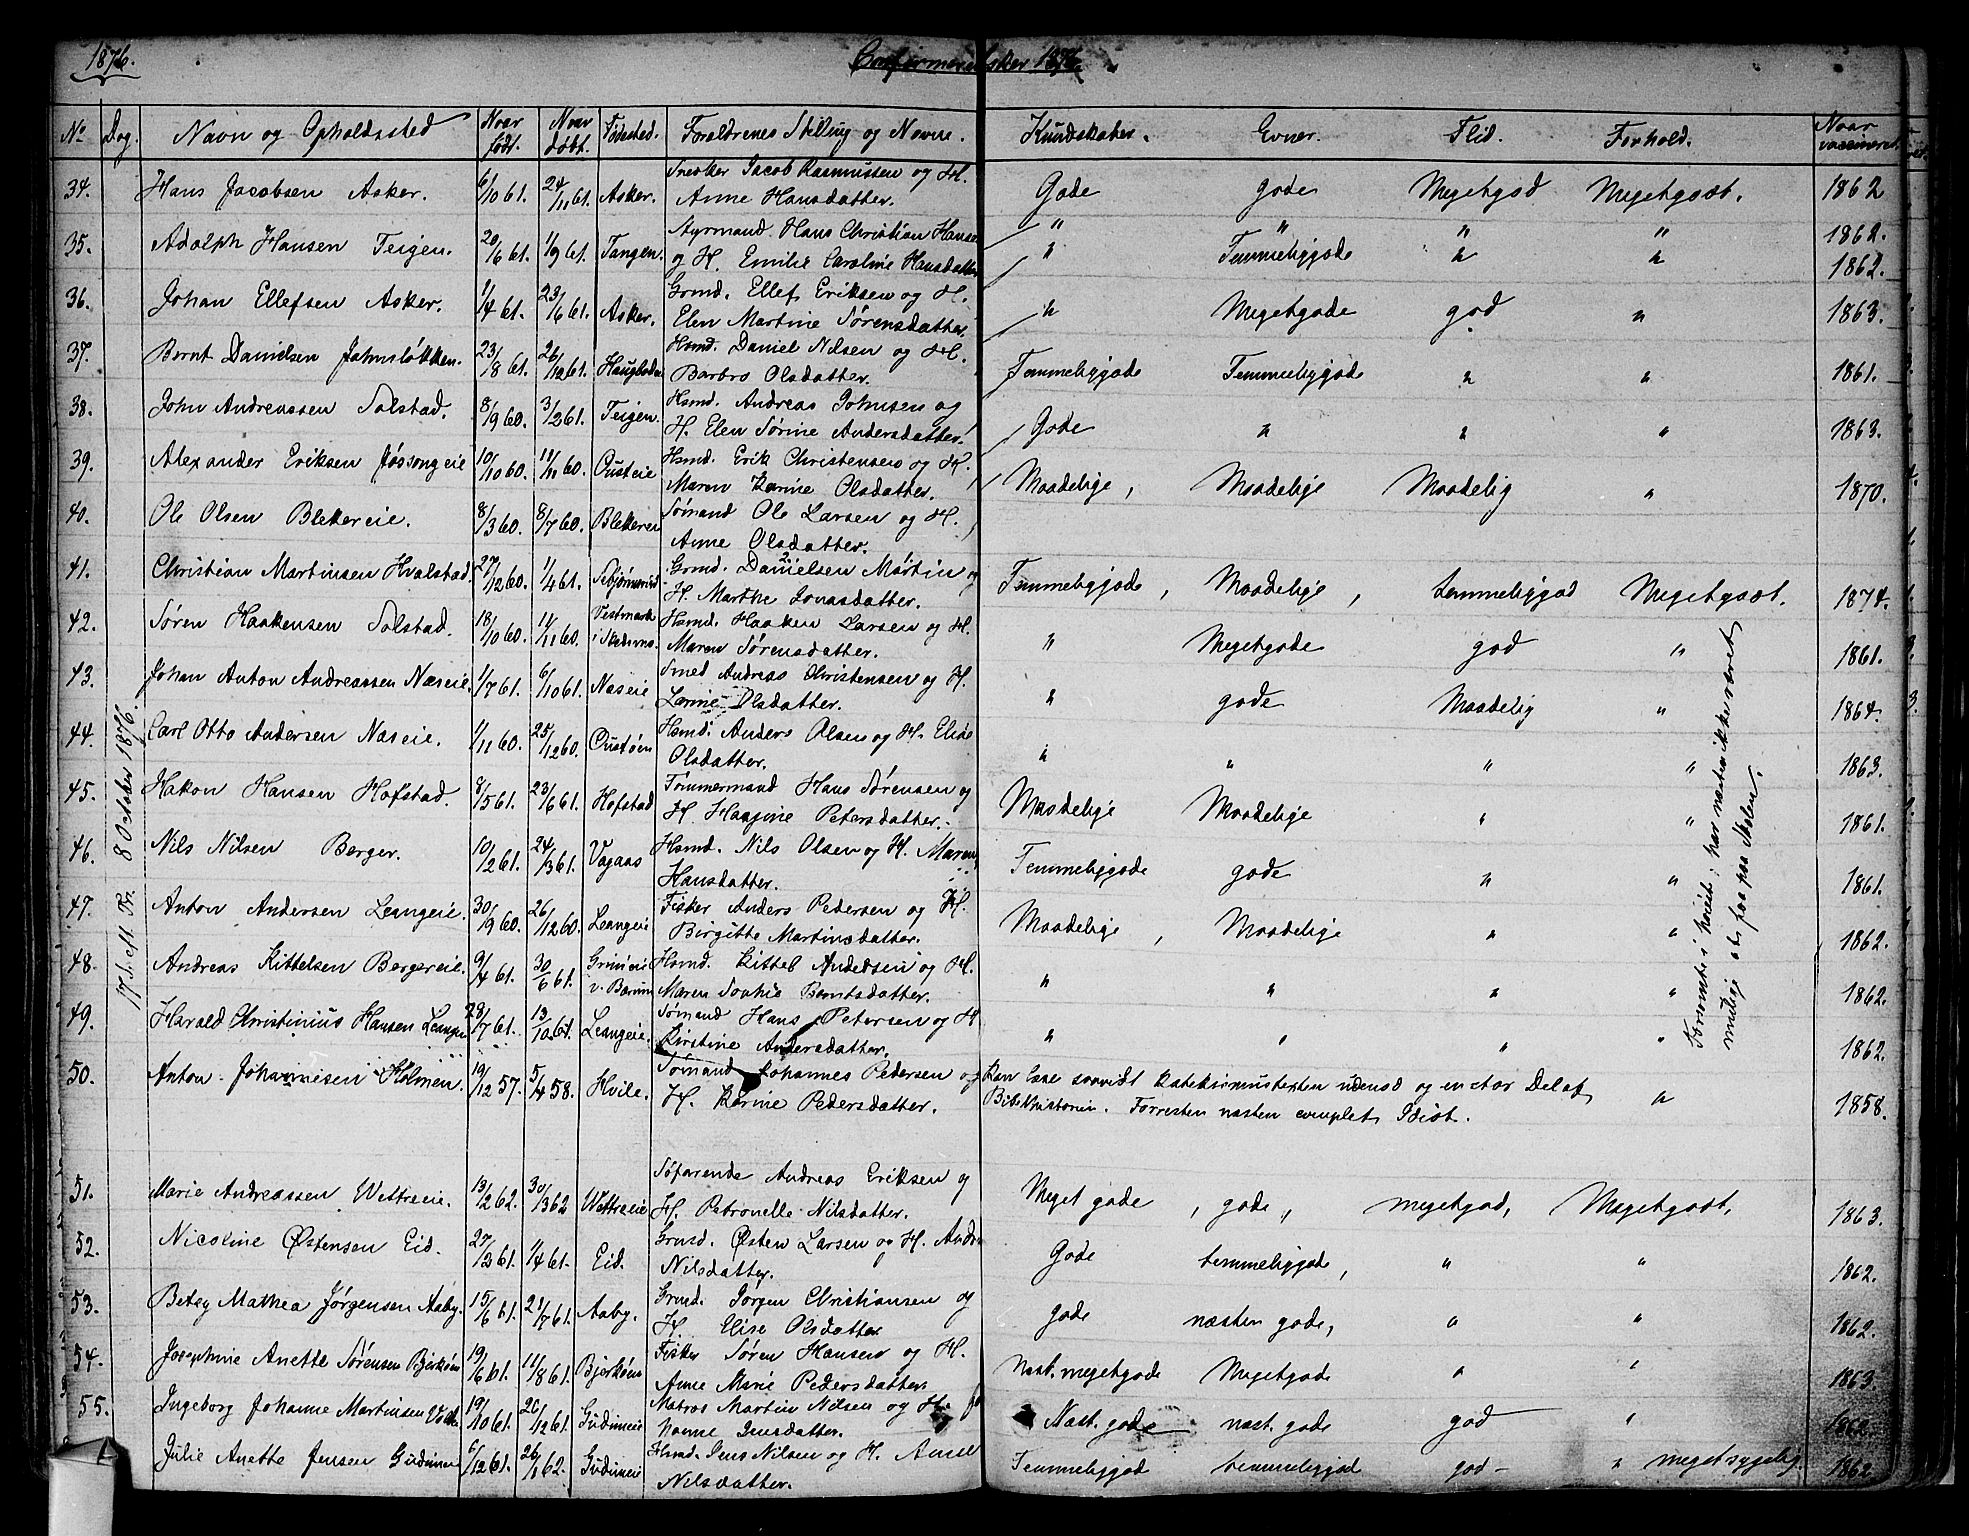 1876. Confirmerede Asker 1876.
No Dag. Navn og Opholdssted Naar født. Naar døbt. Fødested. Forældrenes Stilling og Navne. Kundskaber. Evner. Flid. Forhold. Naar vaccineret.
17. S. eft. Tr. 8 October 1876.
34. Hans Jacobsen Asker. 6/10 61. 24/11 61. Asker. Snedker Jacob Rasmussen og H. Gode gode Megetgod Megetgodt. 1862
Anne Hansdatter.
35. Adolph Hansen Teigen. 20/6 61. 1/9 61. Tangen. Styrmand Hans Christian Hansen " " " " 1862.
og H. Emilie Caroline Hansdatter " Temmeliggode " " 1862.
36. Johan Ellefsen Asker. 1/4 61. 23/6 61. Asker. Grmd. Ellef Eriksen og H. " Megetgode god " 1863.
Elen Martine Sørensdatter.
37. Bernt Danielsen Johnsløkken. 23/8 61. 26/12 61. Haugboden Hsmd. Daniel Nilsen og H. Temmeliggode Temmeliggode " " 1861.
Barbro Olsdatter.
38. John Andreassen Solstad. 8/9 60. 3/2 61. Teigen. Hsmd. Andreas Johnsen og
H. Elen Sørine Andersdatter. Gode " " " 1863.
39. Alexander Eriksen Jøssongeie 10/10 60. 11/11 60. Ousteie Hsmd. Erik Christensen og H.
Maren Karine Olsdatter. Maadelige, Maadelige Maadelig " 1870.
40. Ole Olsen Blekereie. 8/3 60. 8/7 60. Blekeren Sømand Ole Larsen og H.
Anne Olsdatter.
41. Christian Martinsen Hvalstad. 27/12 60. 1/4 61. Grmd. Danielsen Martin og Temmeliggode, Maadelige, temmeliggod Megetgodt. 1874.
H. Marthe Jonasdatter.
42. Søren Haakensen Solstad. 18/10 60. 11/11 60. Vestmark Hsmd. Haaken Larsen og H. " Megetgode god " 1861.
Maren Sørensdatter.
43. Johan Anton Andreassen Næseie. 1/7 61. 6/10 61. Næseie Smed Andreas Christensen og H. " gode Maadelig " 1864.
Larine Olsdatter.
44. Carl Otto Andersen Næseie. 1/11 60. 25/12 60. Oustøen Hsmd. Anders Olsen og H. Elise " " " " 1863.
Olsdatter.
45. Hakon Hansen Hofstad. 8/5 61. 23/6 61. Hofstad Tømmermand Hans Sørensen og Maadelige Maadelige " " 1861.
H. Haagine Petersdatter.
46. Nils Nilsen Berger. 10/2 61. 24/3 61. Vøgaas Hsmd. Nils Olsen og H. Maren Temmeliggode gode " " 1861.
Hansdatter.
47. Anton Andersen Leangeie. 30/9 60. 26/12 60. Leangeie Fisker Anders Pedersen og H. Maadelige, Maadelige " " 1862.
Birgitte Martinsdatter.
48. Andreas Kittelsen Bergereie. 9/4 61. 30/6 61. Grinieie v. Bærum Hsmd. Kittel Andersen og H. " " " " 1862.
Maren Sophie Berntsdatter.
49. Harald Christinius Hansen Leangen 23/7 61. 13/10 61. Leangeie. Sømand Hans Petersen og H. " " " " 1862.
Kirstine Andersdatter.
Forsømte i høiet; har næsten ikke været
mulig at faa paa Skolen.
50. Anton Johannesen Holmen. 19/12 57. 5/4 58. Hvile. Sømand Johannes Pedersen og Kan læse saavidt Katekismusteksten udenad og en stor Del af " 1858.
H. Karine Pedersdatter. Bibelhistorien. Forresten næsten complet Idiot.
51. Marie Andreassen Wettreeie. 13/2 62. 30/3 62 Wettreeie Søfarende Andreas Eriksen og Meget gode, gode, megetgod, Megetgodt. 1863.
H. Petronelle Nilsdatter.
52. Nicoline Østensen Eid. 27/2 61. 1/4 61. Eid. Grmd. Østen Larsen og H. Andrea Gode temmeliggode, " " 1862.
Nilsdatter.
53. Betsy Mathea Jørgensen Aaby. 15/6 61. 21/7 61. Aaby. Grmd. Jørgen Christiansen og gode næsten gode, " " 1862.
H. Elise Olsdatter
54. Josephine Anette Sørensen Bjerkøen 19/6 61. 11/8 61. Bjerkøen Fisker Søren Hansen og H. Næst. megetgode Megetgode " " 1863.
Anne Marie Pedersdatter
55. Ingeborg Johanne Martinsen 19/10 61. 26/12 61. Gudimeie Matros Martin Nilsen og H. Næst. gode næst. gode god " 1862.
Jensdatter.
Julie Anette Jensen Gudimeie 6/12 61. 26/1 62. Gudimeie Hsmd. Jens Nilsen og H. Anne Temmeliggod temmeliggod god - " meget sygelig. 1862
Nilsdatter.